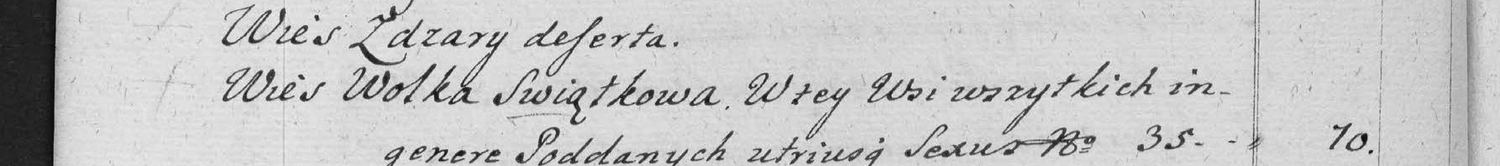 Wieś Zdzary deserta.
Wieś Wolka Swiątkowa. W tey Wsi wszytkich in-
genere Poddanych utriusq̃ Sexus Nº 35. - „ 70.